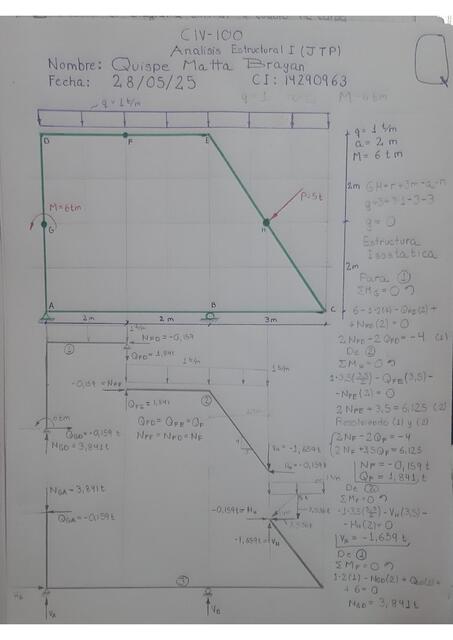 CIV-100
Analisis Estructural I (JTP)
Nombre: Quispe Matta Brayan
Fecha: 28/05/25 CI: 14290963
q = 1 t/m
q = 1 t/m
a = 2 m
M = 6 t m
D
F
E
2m
M=6tm
G
P=5t
H
2m
A
B
C
2 m
2 m
3m
g = 0
Estructura
Isostatica
Para ①
ΣM_G = 0
6-1·2(1)-Q_FD(2)+
+N_FD(2)=0
2N_FD-2Q_FD=-4 (1)
De ②
ΣM_H = 0
1·3,5(3,5/2)-Q_FE(3,5)-
-N_FE(2)=0
2N_FE+3,5Q=6,125 (2)
Resolviendo (1) y (2)
2N_F-2Q_F=-4
2N_F+3,5Q_F=6,125
N_F=-0,159t
Q_F=1,841t
De ②
ΣM_F=0
-1·3,5(3,5/2)-V_H(3,5)-
-H_H(2)=0
V_H=-1,659t
De ①
ΣM_F=0
1·2(1)-N_GD(2)+Q_GD(2)+
+6=0
N_GD=3,841t
1 t/m
①
N_FD=-0,159
Q_FD=1,841
1t/m
1t/m
-0,159=N_FE
Q_FE=1,841
②
Q_FD=Q_FE=Q_F
N_FE=N_FD=N_F
6tm
Q_GD=-0,159t
N_GD=3,841t
V_H=-1,659t
H_H=-0,159t
N_GA=3,841t
Q_GA=-0,159t
-0,159t=H_H
-1,659t=V_H
③
H_A
V_A
V_B